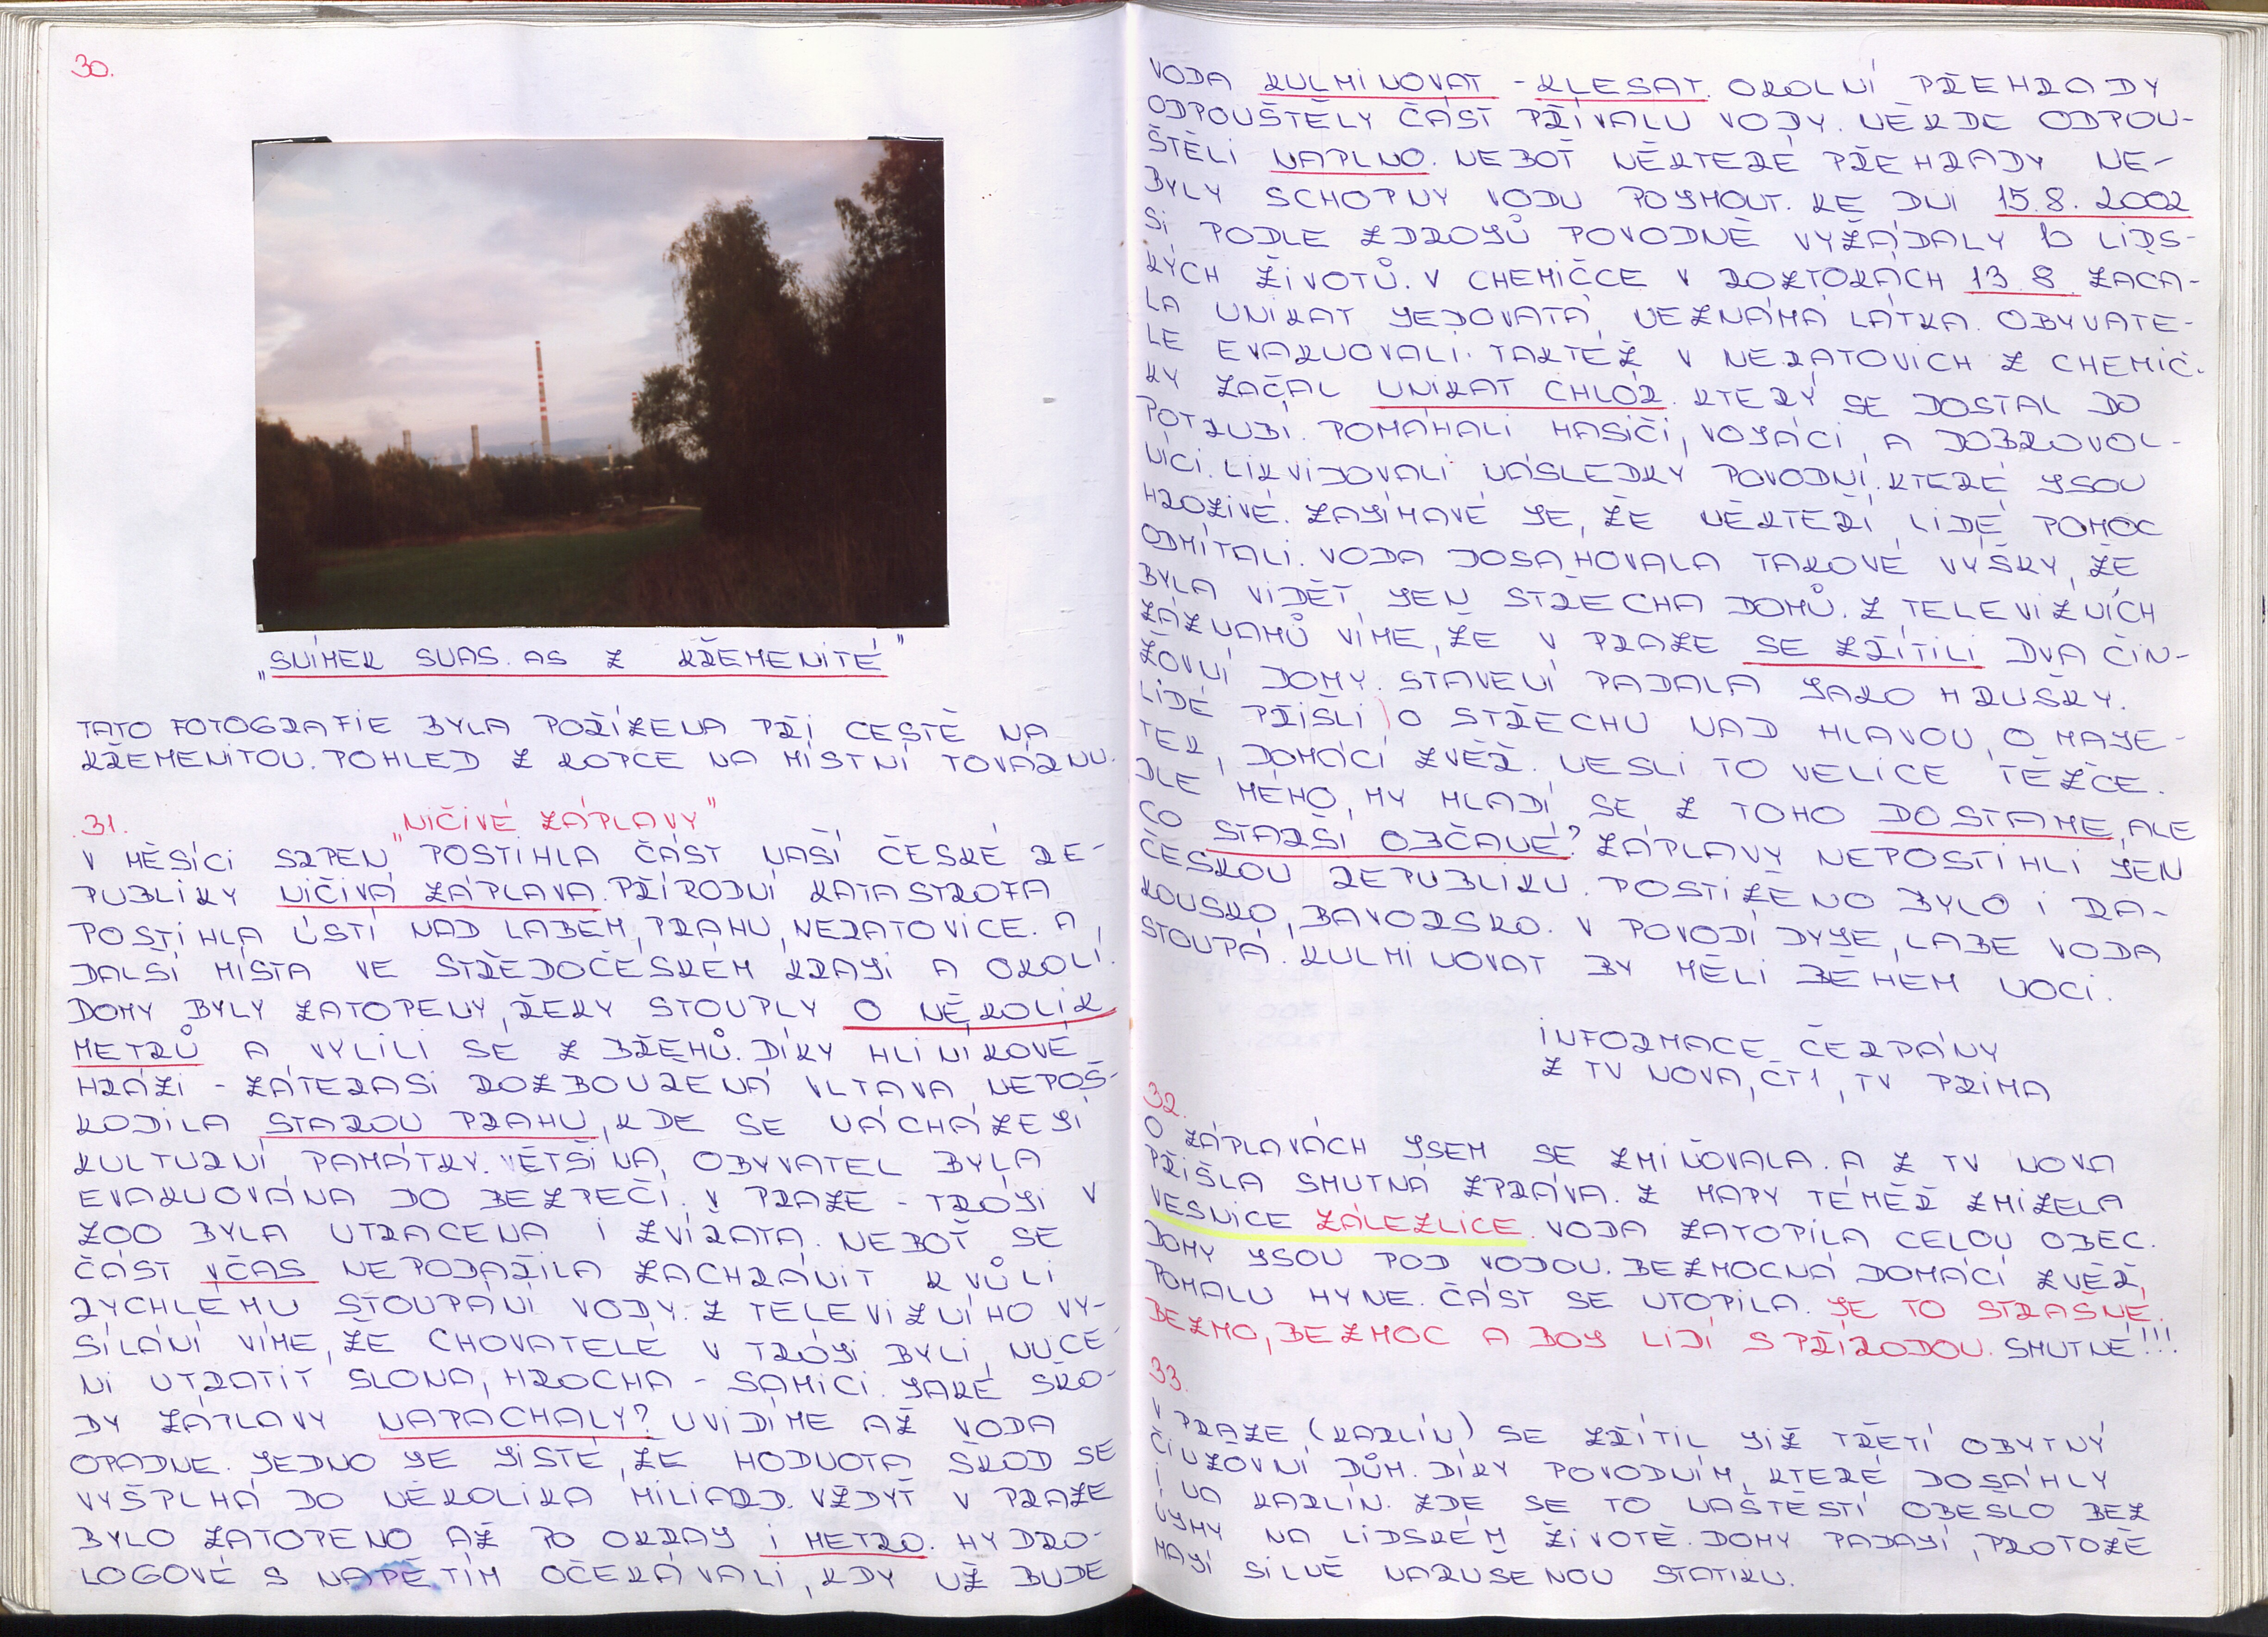 30.
„SNÍMEK SUAS. AS Z KŘEMENITÉ"
TATO FOTOGRAFIE BYLA POŘÍZENA PŘI CESTĚ NA
KŘEMENITOU. POHLED Z KOPCE NA MÍSTNÍ TOVÁRNU.
31. „NIČIVÉ ZÁPLAVY"
V MĚSÍCI SRPEN POSTIHLA ČÁST NAŠÍ ČESKÉ RE-
PUBLIKY NIČIVÁ ZÁPLAVA. PŘÍRODNÍ KATASTROFA
POSTIHLA ÚSTÍ NAD LABEM, PRAHU, NERATOVICE. A
DALŠÍ MÍSTA VE STŘEDOČESKÉM KRAJI A OKOLÍ.
DOMY BYLY ZATOPENY, ŘEKY STOUPLY O NĚKOLIK
METRŮ A VYLILI SE Z BŘEHŮ. DÍKY HLINIKOVÉ
HRÁZI - ZÁTERASI ROZBOUŘENÁ VLTAVA NEPOŠ-
KODILA STAROU PRAHU, KDE SE NÁCHÁZEJÍ
KULTURNÍ PAMÁTKY. VĚTŠINA OBYVATEL BYLA
EVAKUOVÁNA DO BEZPEČÍ. V PRAZE - TROJI V
ZOO BYLA UTRACENA I ZVÍŘATA. NEBOŤ SE
ČÁST VČAS NEPODAŘILA ZACHRÁNIT KVŮLI
RYCHLÉMU STOUPÁNÍ VODY. Z TELEVIZNÍHO VY-
SÍLÁNÍ VÍME, ŽE CHOVATELÉ V TRÓJI BYLI NUCE-
NI UTRATIT SLONA, HROCHA - SAMICI. JAKÉ ŠKO-
DY ZÁPLAVY NAPÁCHALY? UVIDÍME AŽ VODA
OPADNE. JEDNO JE JISTÉ, ŽE HODNOTA ŠKOD SE
VYŠPLHÁ DO NĚKOLIKA MILIARD. VŽDYŤ V PRAZE
BYLO ZATOPENO AŽ PO OKRAJ I METRO. HYDRO-
LOGOVÉ S NAPĚTÍM OČEKÁVALI, KDY UŽ BUDE
VODA KULMINOVAT - KLESAT. OKOLNÍ PŘEHRADY
ODPOUŠTĚLY ČÁST PŘÍVALU VODY. NĚKDE ODPOU-
ŠTĚLI NAPLNO. NEBOŤ NĚKTERÉ PŘEHRADY NE-
BYLY SCHOPNY VODU POJMOUT. KE DNI 15.8. 2002
SI PODLE ZDROJŮ POVODNĚ VYŽÁDALY 10 LIDS-
KÝCH ŽIVOTŮ. V CHEMIČCE V ROZTOKÁCH 13.8. ZAČA-
LA UNIKAT JEDOVATÁ, NEZNÁMÁ LÁTKA. OBYVATE-
LE EVAKUOVALI. TAKTÉŽ V NERATOVICH Z CHEMIČ-
KY ZAČAL UNIKAT CHLÓR. KTERÝ SE DOSTAL DO
POTRUBÍ. POMÁHALI HASIČI, VOJÁCI, A DOBROVOL-
NÍCI. LIKVIDOVALI NÁSLEDKY POVODNÍ. KTERÉ JSOU
HROZIVÉ. ZAJÍMAVÉ JE, ŽE NĚKTEŘÍ LIDÉ POMOC
ODMÍTALI. VODA DOSAHOVALA TAKOVÉ VÝŠKY, ŽE
BYLA VIDĚT JEN STŘECHA DOMŮ. Z TELEVIZNÍCH
ZÁZNAMŮ VÍME, ŽE V PRAZE SE ZŘÍTILI DVA ČIN-
ŽOVNÍ DOMY. STAVENÍ PADALA JAKO HRUŠKY.
LIDÉ PŘIŠLI O STŘECHU NAD HLAVOU, O MAJE-
TEK, DOMÁCÍ ZVĚŘ. NESLI TO VELICE TĚŽCE.
DLE MÉHO, MY MLADÍ SE Z TOHO DOSTAME, ALE
CO STARŠÍ OBČANÉ? ZÁPLAVY NEPOSTIHLI JEN
ČESKOU REPUBLIKU. POSTIŽENO BYLO I RA-
KOUSKO, BAVORSKO. V POVODÍ DYJE, LABE VODA
STOUPÁ. KULMINOVAT BY MĚLI BĚHEM NOCI.
INFORMACE ČERPÁNY
Z TV NOVA, ČT1, TV PRIMA
32.
O ZÁPLAVÁCH JSEM SE ZMIŇOVALA. A Z TV NOVA
PŘIŠLA SMUTNÁ ZPRÁVA. Z MAPY TÉMĚŘ ZMIZELA
VESNICE ZÁLEZLICE. VODA ZATOPILA CELOU OBEC.
DOMY JSOU POD VODOU. BEZMOCNÁ DOMÁCÍ ZVĚŘ,
POMALU HYNE. ČÁST SE UTOPILA. JE TO STRAŠNÉ.
BEZMO, BEZMOC A BOJ LIDÍ S PŘÍRODOU. SMUTNÉ!!!
33.
V PRAZE (KARLÍN) SE ZŘÍTIL JIŽ TŘETÍ OBYTNÝ
ČINŽOVNÍ DŮM. DÍKY POVODNÍM, KTERÉ DOSÁHLY
I NA KARLÍN. ZDE SE TO NAŠTĚSTÍ OBEŠLO BEZ
ÚJMY NA LIDSKÉM ŽIVOTĚ. DOMY PADAJÍ, PROTOŽE
MAJÍ SILNĚ NARUŠENOU STATIKU.